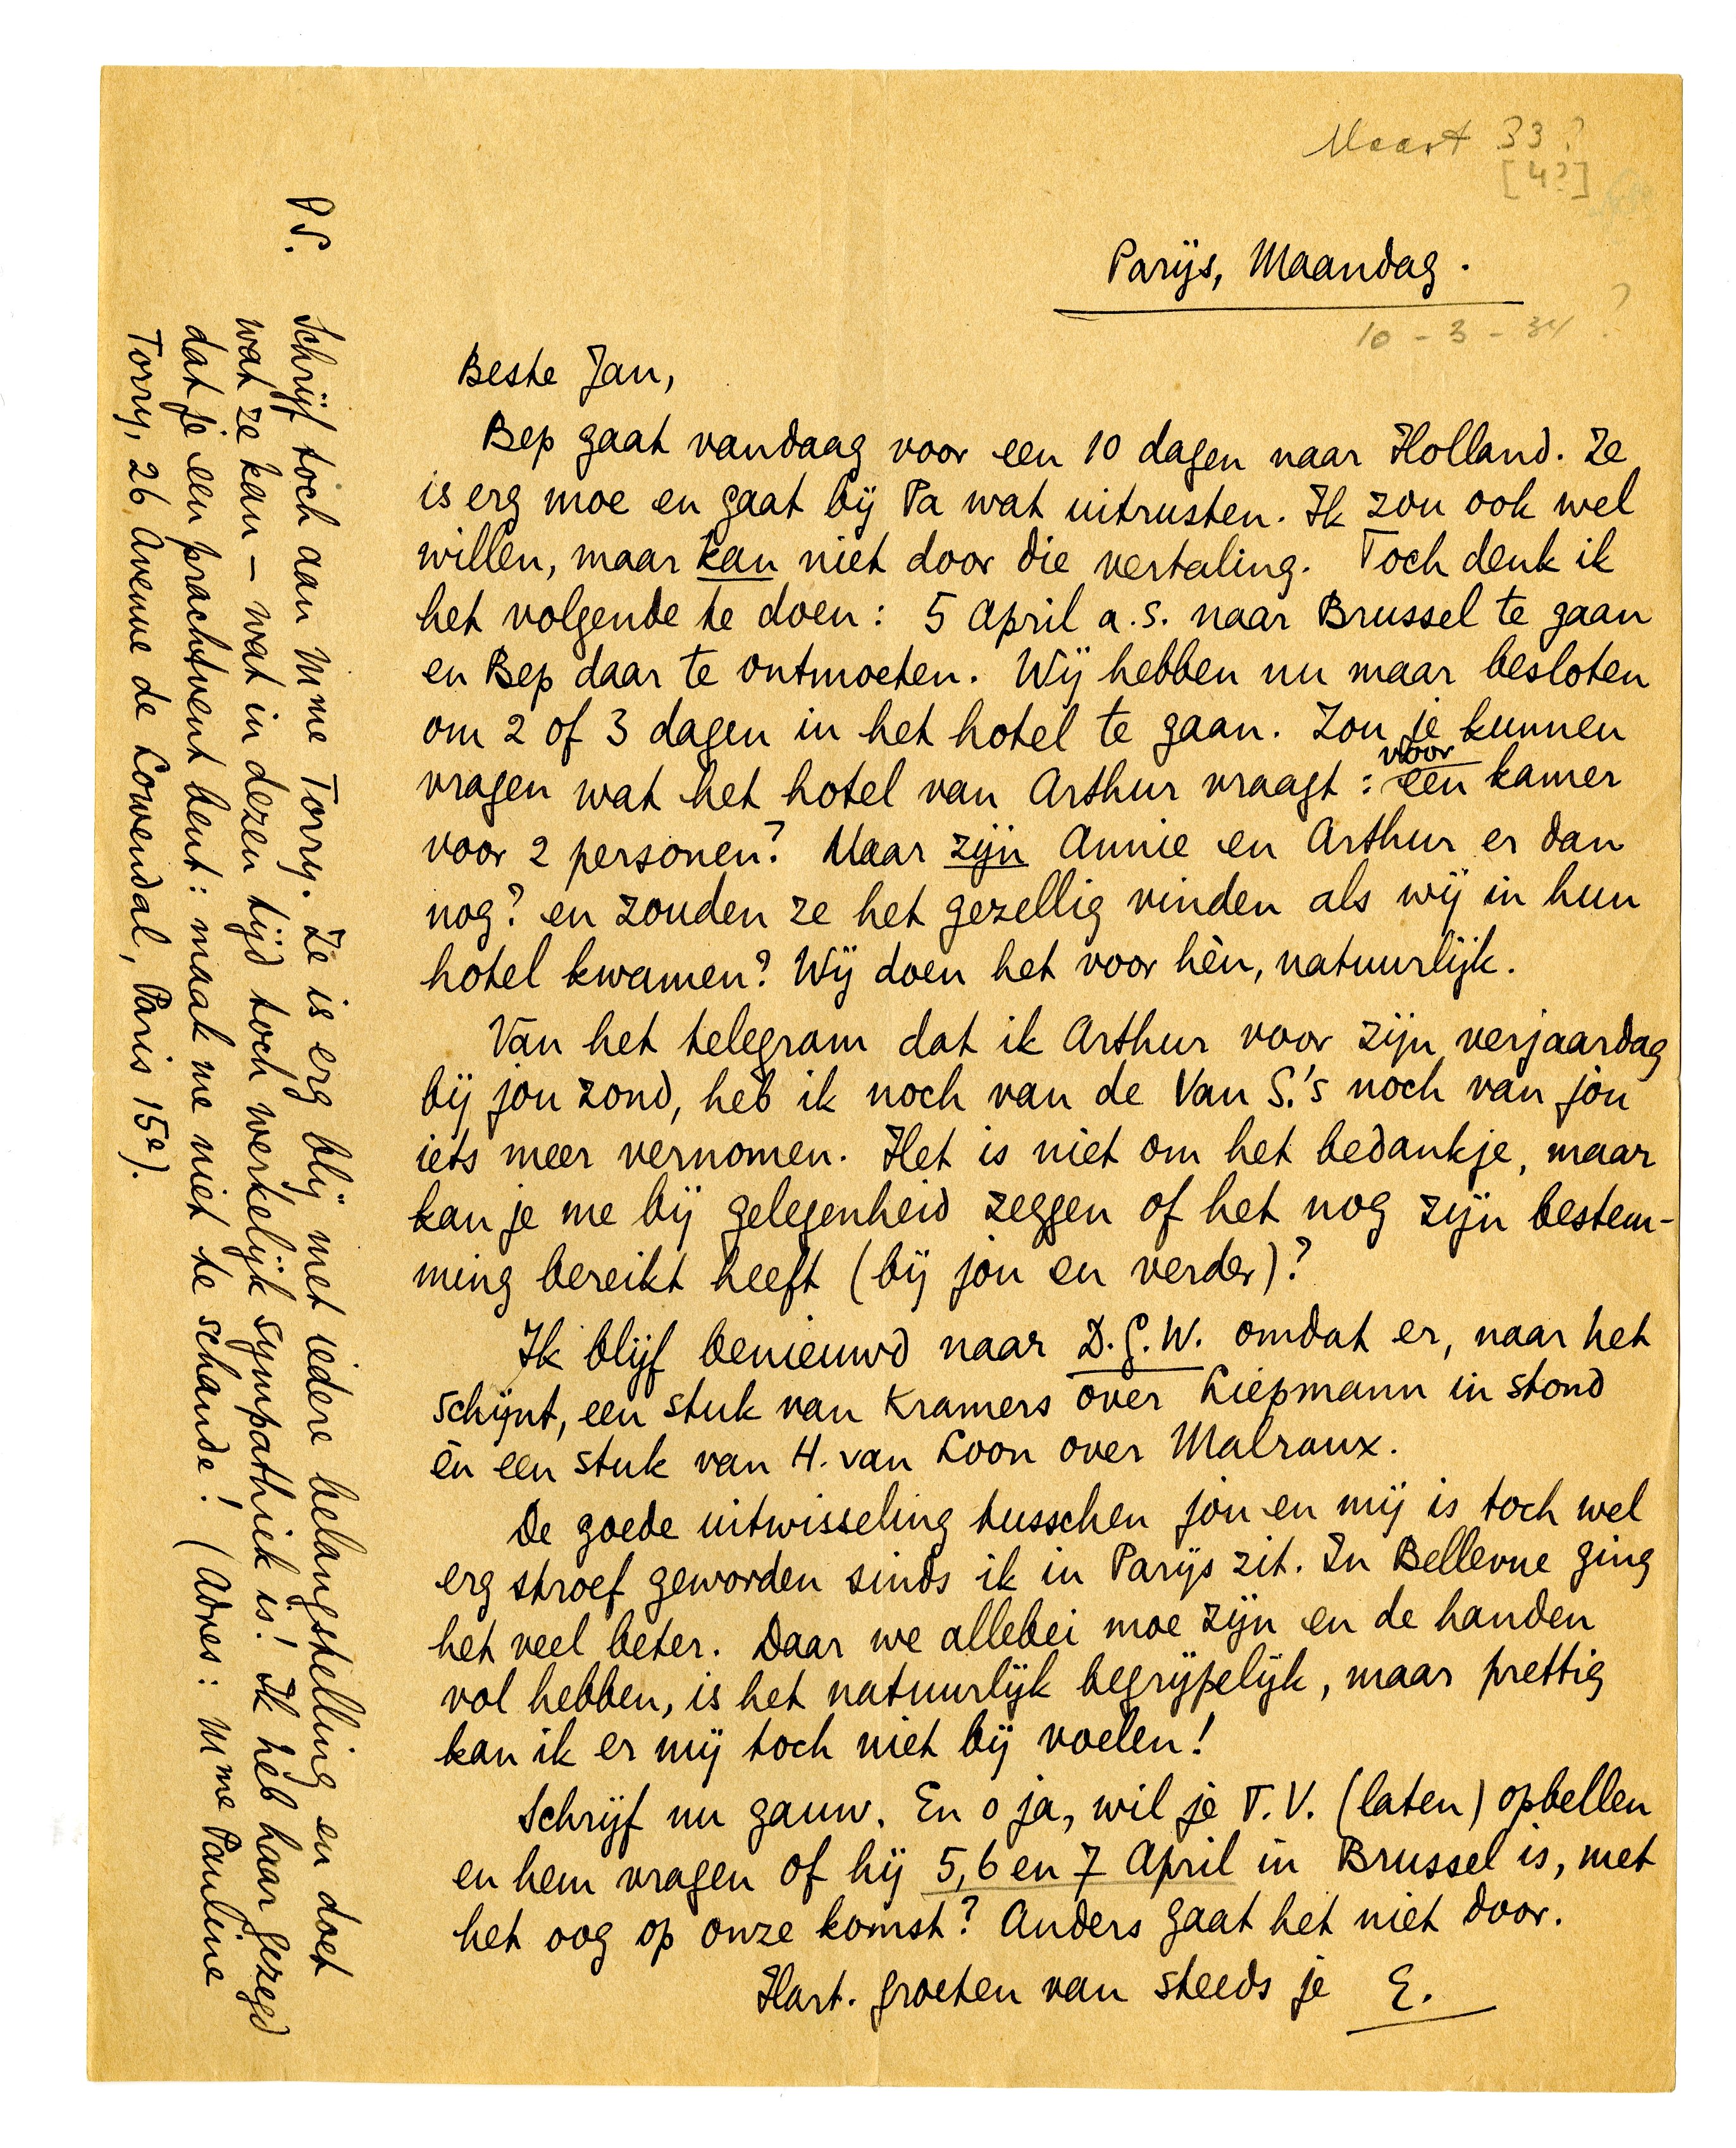 Maart 33?
[4?]
Parijs, Maandag.
10 - 3 - 34 ?
Beste Jan,
Bep gaat vandaag voor een 10 dagen naar Holland. Ze
is erg moe en gaat bij Pa wat uitrusten. Ik zou ook wel
willen, maar kan niet door die vertaling. Toch denk ik
het volgende te doen: 5 April a.s. naar Brussel te gaan
en Bep daar te ontmoeten. Wij hebben nu maar besloten
om 2 of 3 dagen in het hotel te gaan. Zou je kunnen
vragen wat het hotel van Arthur vraagt: voor een kamer
voor 2 personen? Maar zijn Annie en Arthur er dan
nog? en zouden ze het gezellig vinden als wij in hun
hotel kwamen? Wij doen het voor hèn, natuurlijk.
Van het telegram dat ik Arthur voor zijn verjaardag
bij jou zond, heb ik noch van de Van S.'s noch van jou
iets meer vernomen. Het is niet om het bedankje, maar
kan je me bij gelegenheid zeggen of het nog zijn bestem-
ming bereikt heeft (bij jou en verder)?
Ik blijf benieuwd naar D.G.W. omdat er, naar het
schijnt, een stuk van Kramers over Liepmann in stond
èn een stuk van H. van Loon over Malraux.
De goede uitwisseling tusschen jou en mij is toch wel
erg stroef geworden sinds ik in Parijs zit. In Bellevue ging
het veel beter. Daar we allebei moe zijn en de handen
vol hebben, is het natuurlijk begrijpelijk, maar prettig
kan ik er mij toch niet bij voelen!
Schrijf nu gauw. En o ja, wil je T.V. (laten) opbellen
en hem vragen of hij 5, 6 en 7 April in Brussel is, met
het oog op onze komst? Anders gaat het niet door.
Hart. groeten van steeds je E.
P.S. Schrijf toch aan Mme Torry. Ze is erg blij met iedere belangstelling en doet
wat ze kan – wat in dezen tijd toch werkelijk sympathiek is! Ik heb haar gezegd
dat je een prachtvent bent: maak me niet te schande! (Adres: Mme Pauline
Torry, 26 Avenue de Lowendal, Paris 15e).